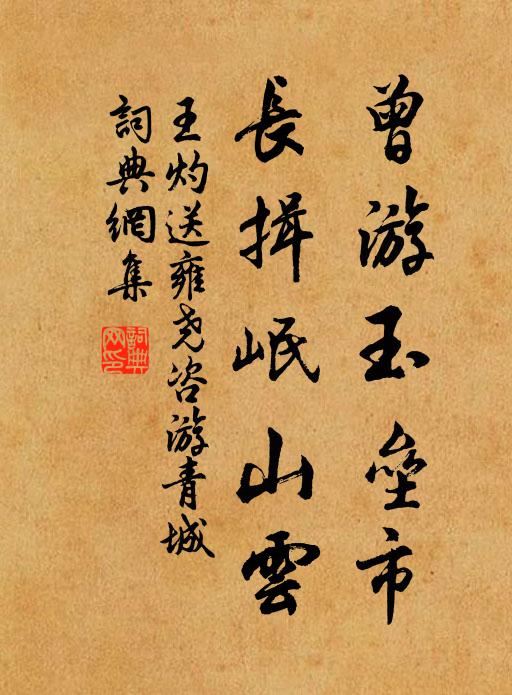 曾游玉垒市
長揖岷山雲
王灼送雍尧咨游青城
詞典網集
詞典网印